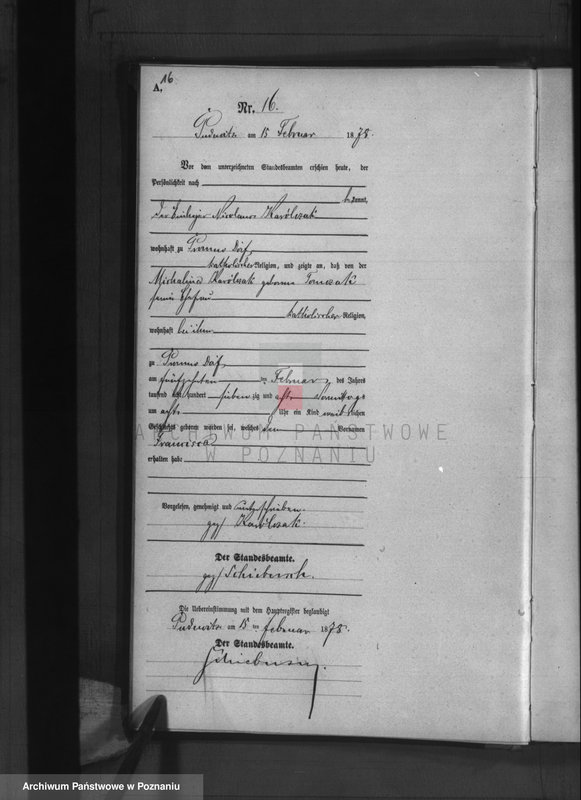 A. 16
Nr. 16.
Pudewitz am 15 Februar 1878.
Vor dem unterzeichneten Standesbeamten erschien heute, der
Persönlichkeit nach
bekannt,
der Nicolaus Karólczak
wohnhaft zu Promno Dorf,
katholischer Religion, und zeigte an, daß von der
Michalina Karólczak geborne Tomczak
seiner Ehefrau
katholischer Religion,
wohnhaft bei ihm
zu Promno Dorf,
am fünfzehnten ten Februar, des Jahres
tausend acht hundert sieben zig und acht Vormittags
um acht Uhr ein Kind weiblichen
Geschlechts geboren worden sei, welches den Vornamen
Francisca
erhalten habe
Vorgelesen, genehmigt und unterschrieben.
gez/ Karólczak.
Der Standesbeamte.
gez/
Die Uebereinstimmung mit dem Hauptregister beglaubigt
Pudewitz am 15 ten Februar 1878.
Der Standesbeamte.
ARCHIWUM PAŃSTWOWE
W POZNANIU
Archiwum Państwowe w Poznaniu